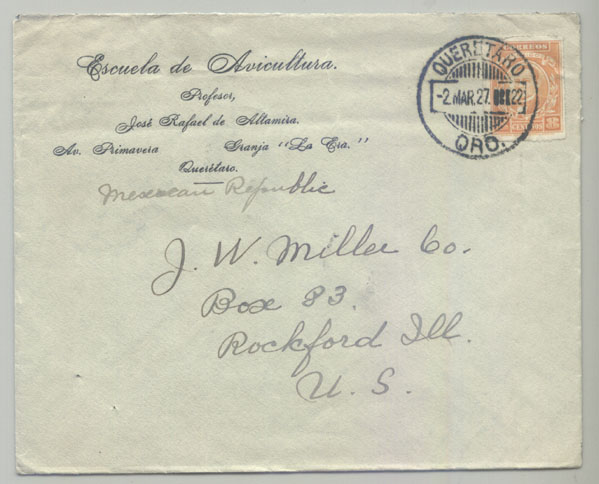 Escuela de Avicultura.
Profesor,
José Rafael de Altamira.
Av. Primavera Granja "La Era."
Querétaro.
Mexecan Republic
QUERETARO
-2.MAR.27. 22
QRO.
CORREOS
CENTAVOS 8
J. W. Miller Co.
Box 83.
Rockford Ill.
U. S.